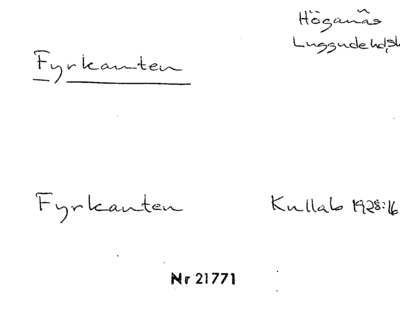 Höganäs
Luggude hd, sk
Fyrkanten
Fyrkanten Kullab 1928:16
Nr 21771